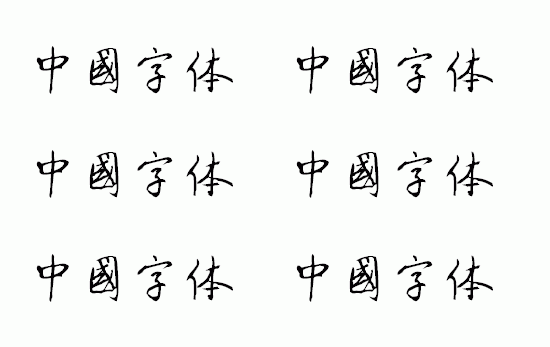 中國字体 中國字体
中國字体 中國字体
中國字体 中國字体